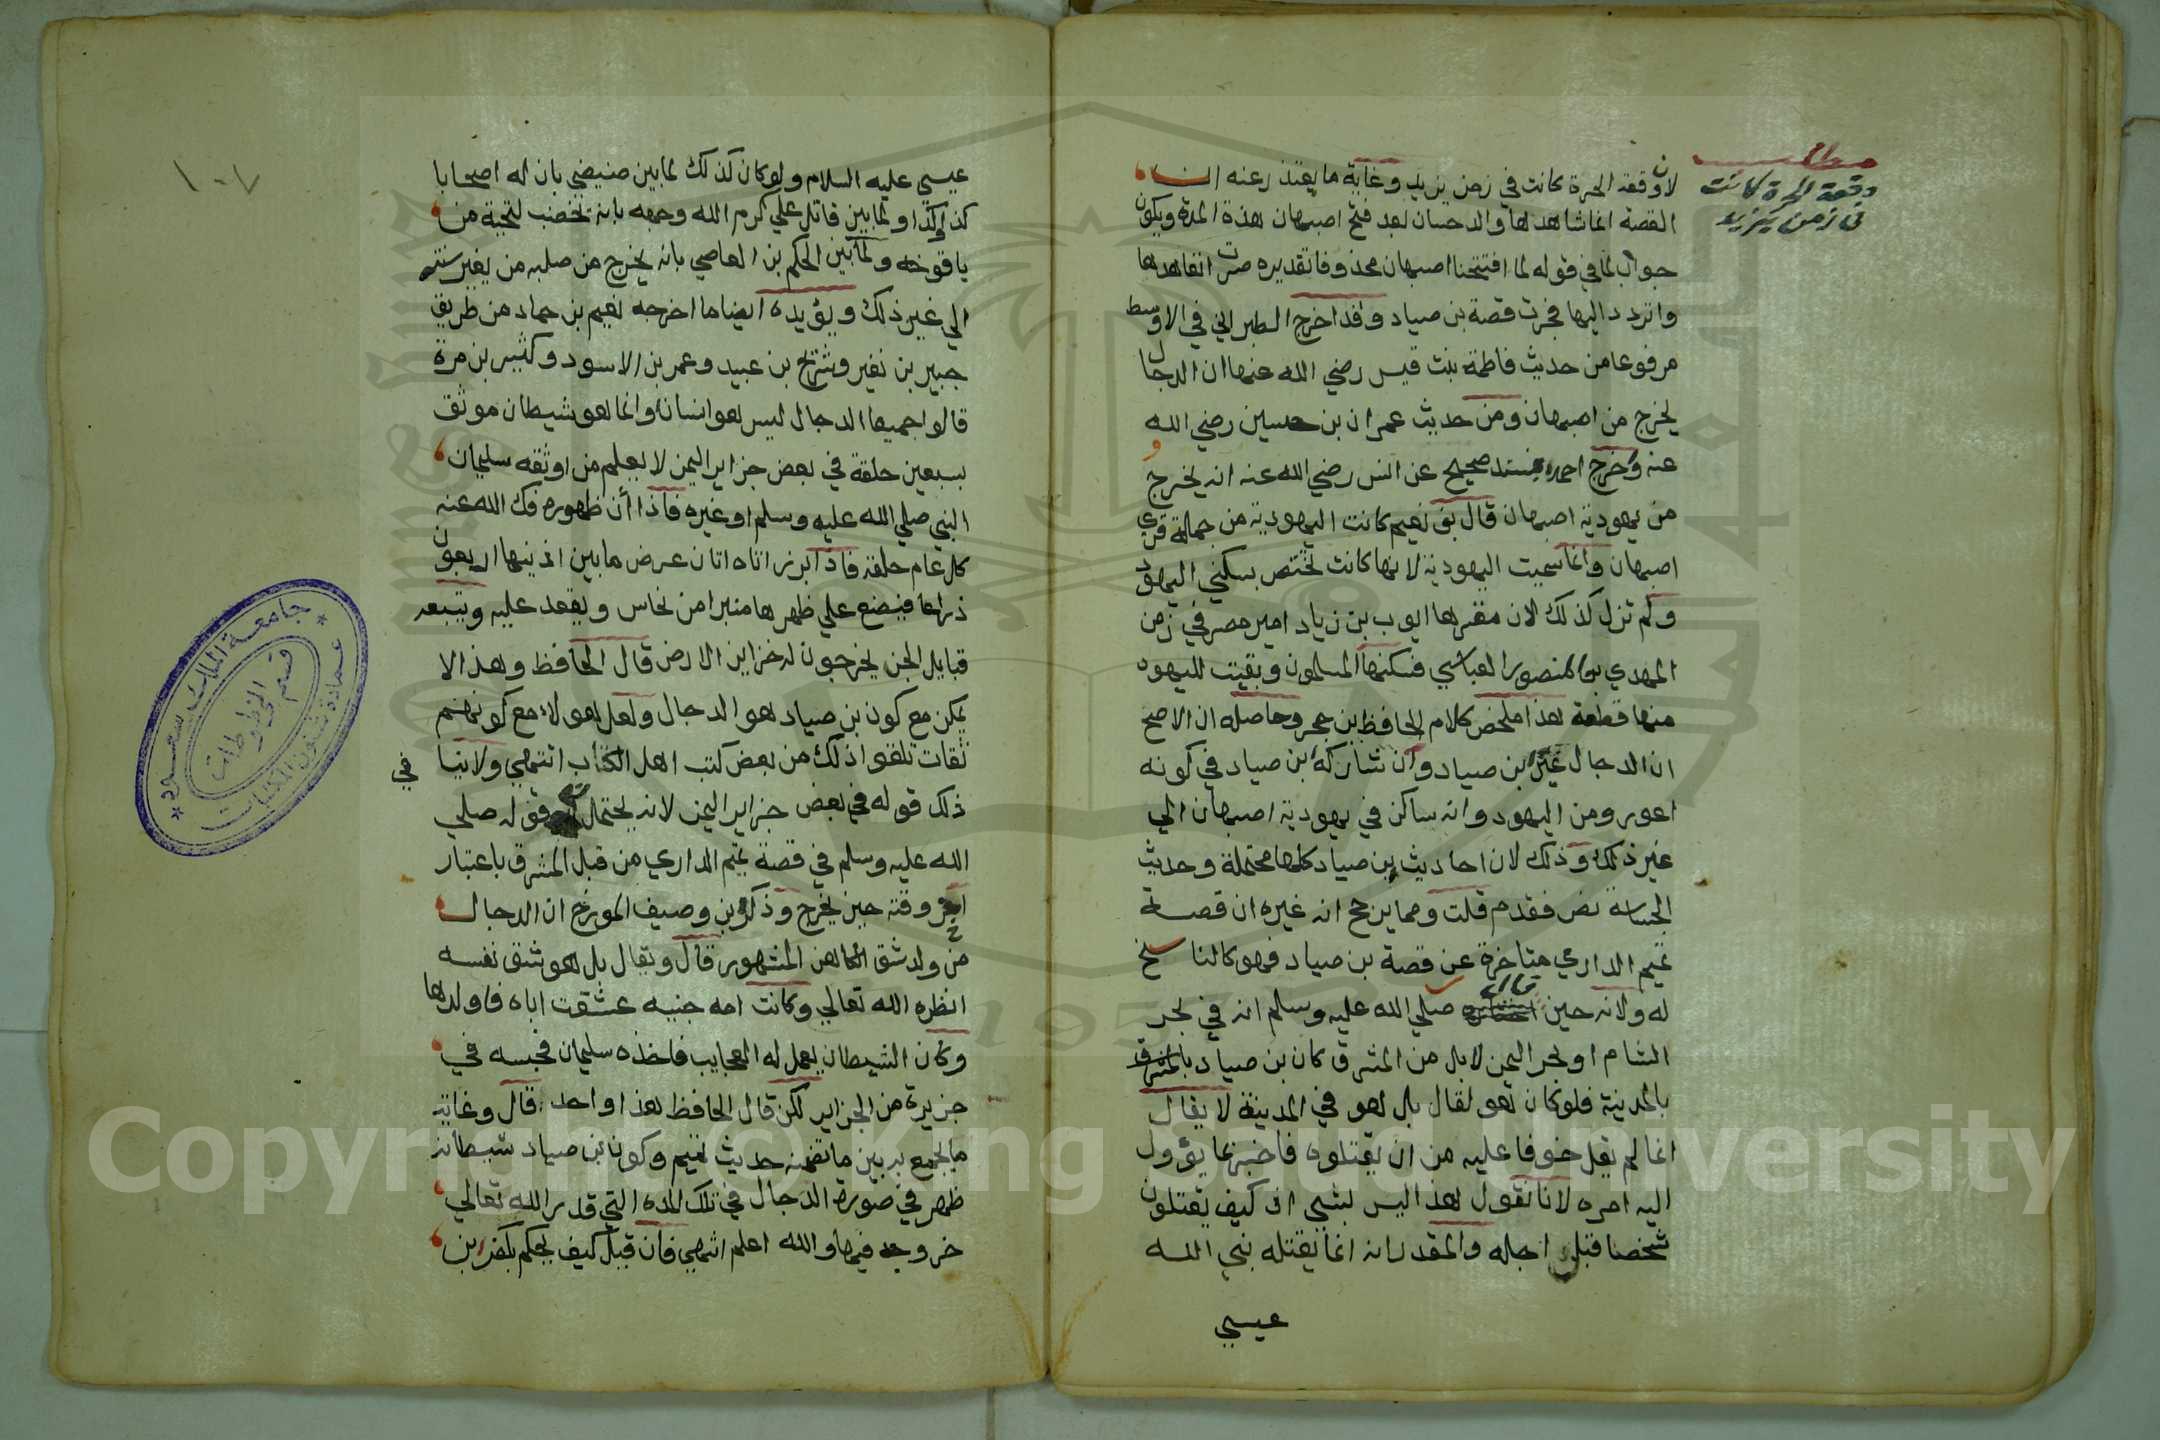 مطلب
وقعة الحرة كانت
في زمن يزيد
لان وقعة الحرة كانت في زمن يزيد وغاية ما يعتذر عنه ان
القصة انما شاهدها والد حسان بعد فتح اصبهان هذه المدة ويكون
جواب لما في قوله لما افتتحنا اصبهان محذوفا تقديره صرت اتعاهدها
واتردد اليها فجرت قصة بن صياد وقد اخرج الطبراني في الاوسط
مرفوعا من حديث فاطمة بنت قيس رضي الله عنها ان الدجال
يخرج من اصبهان ومن حديث عمران بن حصين رضي الله
عنه واخرج احمد بسند صحيح عن انس رضي الله عنه انه يخرج
من يهودية اصبهان قال ابو نعيم كانت اليهودية من جملة قري
اصبهان وانما سميت اليهودية لانها كانت تختص بسكني اليهود
ولم تزل كذلك الان مقرها ايوب بن زياد امير مصر في زمن
المهدي بن المنصور العباسي فسكنها المسلمون وبقيت لليهود
منها قطعة هذا ملخص كلام الحافظ بن حجر وحاصله ان الاصح
ان الدجال غير ابن صياد وان شاركه بن صياد في كونه
اعور ومن اليهود وانه ساكن في يهودية اصبهان الي
غير ذلك وذلك لان احاديث بن صياد كلها محتملة وحديث
الجساسة نص فقدم قلت ومما يرجح انه غيره ان قصة
تميم الداري متاخرة عن قصة بن صياد فهو كالناسخ
له ولانه حين قال صلي الله عليه وسلم انه في بحر
الشام او بحر اليمن لا بل من المشرق كان بن صياد
بالمدينة فلو كان هو لقال بل هو في المدينة لا يقال
انما لم يقل خوفا عليه من ان يقتلوه فاخبر بما يؤول
اليه امره لانا نقول هذا ليس بشي اذ كيف يقتلون
شخصا قبل اجله والمقدر انه انما يقتله نبي الله
عيسي
١٠٧
عيسي عليه السلام ولو كان كذلك لما بين ضئضي بان له اصحابا
كذا وكذا ولما بين قاتل علي كرم الله وجهه بانه تخضب لحيته من
يافوخه ولما بين الحكم بن العاصي بانه يخرج من صلبه من يغير سنته
الي غير ذلك ويؤيده ايضا ما اخرجه نعيم بن حماد من طريق
جبير بن نفير وشريح بن عبيد وعمر بن الاسود وكثير بن مرة
قالوا جميعا الدجال ليس هو انسان وانما هو شيطان موثق
بسبعين حلقة في بعض جزاير اليمن لا يعلم من اوثقه سليمان
النبي صلي الله عليه وسلم او غيره فاذا أن ظهوره فك الله عنه
كل عام حلقة فاذا برز اتاه اتان عرض ما بين اذنيها اربعون
ذراعا فيضع علي ظهرها منبرا من نحاس ويقعد عليه وتتبعه
قبايل الجن يخرجون له خزاين الارض قال الحافظ وهذا لا
يمكن مع كون بن صياد هو الدجال ولعل هولاء مع كونهم
ثقات تلقوا ذلك من بعض كتب اهل الكتاب انتهي ولا ينافي
ذلك قوله في بعض جزاير اليمن لانه يحتمل قوله صلي
الله عليه وسلم في قصة تميم الداري من قبل المشرق باعتبار
اخر وقته حين يخرج وذكر بن وصيف المورخ ان الدجال
من ولد شق الكاهن المشهور قال ويقال بل هو شق نفسه
انظره الله تعالي وكانت امه جنيه عشقت اباه فاولدها
وكان الشيطان يعمل له العجايب فاخذه سليمان فحبسه في
جزيرة من الجزاير لكن قال الحافظ هذا واحد قال وغاية
ما يجمع به بين ما تضمنه حديث تميم وكون بن صياد شيطانه
ظهر في صورة الدجال في تلك المدة التي قدر الله تعالي
خروجه فيها والله اعلم انتهي فان قيل كيف يحكم بكفر ابن
جامعة الملك سعود
عمادة شئون المكتبات
قسم المخطوطات
Copyright (c) King Saud University
1957